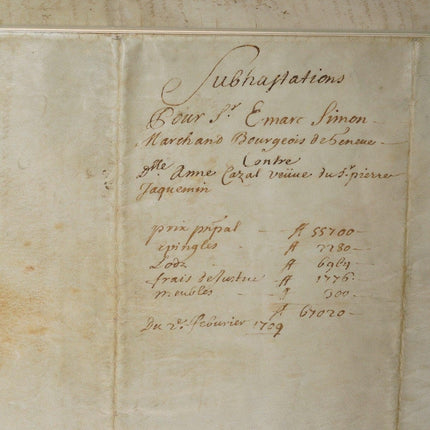 Subhastations
Pour Sr. Emarc Simon
Marchand Bourgeois de Geneve
Contre
Dlle Anne Cazal veüve du Sr. pierre
Jaquemin
prix prpal ff 55700
epingles ff 2280
Lodz ff 6964
frais de Justice ff 1776
meubles ff 300
ff 67020
Du 2e. feburier 1709